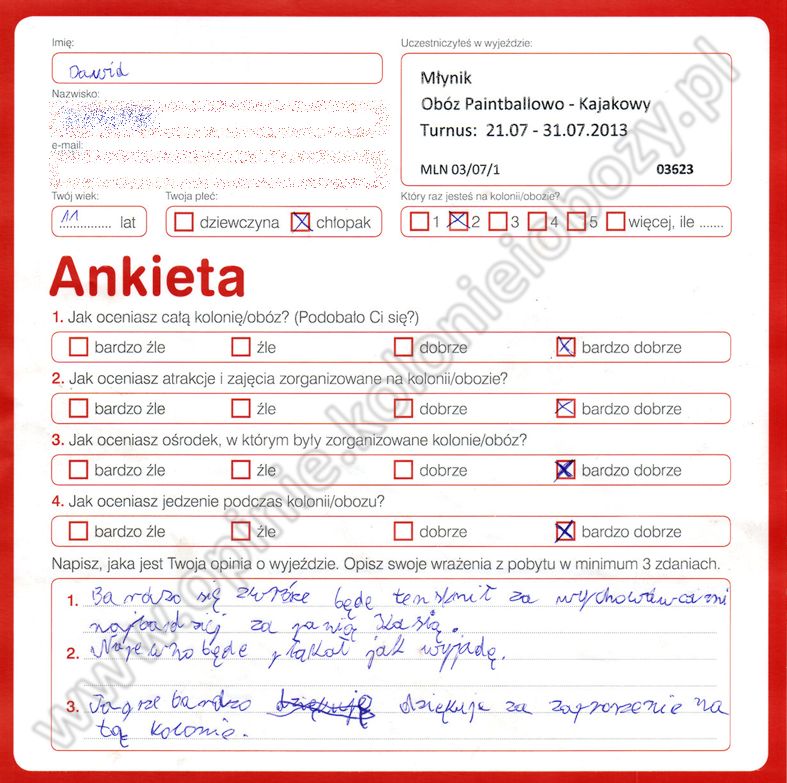 Imię:
Dawid
Nazwisko:
e-mail:
Twój wiek:
11 lat
Twoja płeć:
dziewczyna chłopak
Uczestniczyłeś w wyjeździe:
Młynik
Obóz Paintballowo - Kajakowy
Turnus: 21.07 - 31.07.2013
MLN 03/07/1 03623
Który raz jesteś na kolonii/obozie?
1 2 3 4 5 więcej, ile .......
Ankieta
1. Jak oceniasz całą kolonię/obóz? (Podobało Ci się?)
bardzo źle źle dobrze bardzo dobrze
2. Jak oceniasz atrakcje i zajęcia zorganizowane na kolonii/obozie?
bardzo źle źle dobrze bardzo dobrze
3. Jak oceniasz ośrodek, w którym były zorganizowane kolonie/obóz?
bardzo źle źle dobrze bardzo dobrze
4. Jak oceniasz jedzenie podczas kolonii/obozu?
bardzo źle źle dobrze bardzo dobrze
Napisz, jaka jest Twoja opinia o wyjeździe. Opisz swoje wrażenia z pobytu w minimum 3 zdaniach.
1. Bardzo się będe tensknił za wychowawcami
najbardziej za panią Kasią.
2. Napewno będe płakał jak wyjadę.
3. bardzo dziękuje za zaproszenie na
tą kolonie.
www.opinie.kolonieiobozy.pl